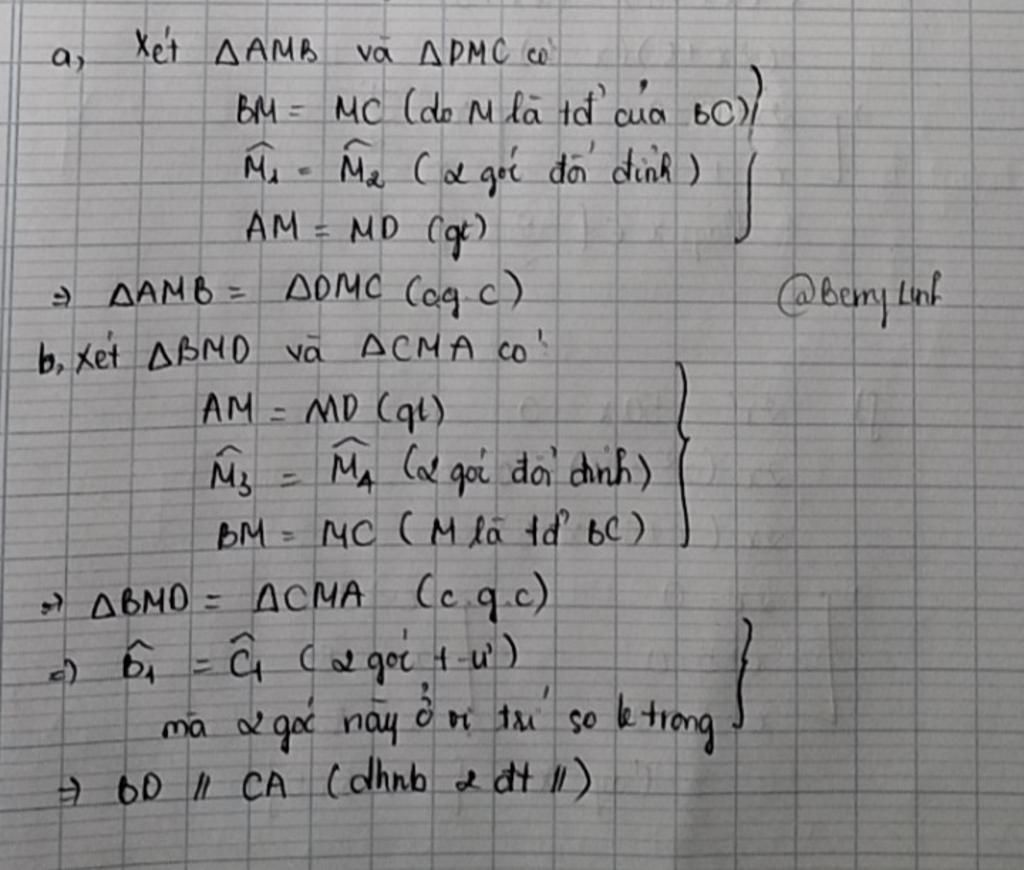 a, Xét ΔAMB và ΔDMC có
BM = MC (do M là tđ của BC)
M̂₁ = M̂₂ (2 góc đối đỉnh)
AM = MD (gt)
⇒ ΔAMB = ΔDMC (c.g.c)
@Berry Linh
b, Xét ΔBMD và ΔCMA có
AM = MD (gt)
M̂₃ = M̂₄ (2 góc đối đỉnh)
BM = MC (M là tđ BC)
⇒ ΔBMD = ΔCMA (c.g.c)
⇒ B̂₁ = Ĉ₁ (2 góc t-ư)
mà 2 góc này ở vị trí so le trong
⇒ BD // CA (dhnb 2 đt //)